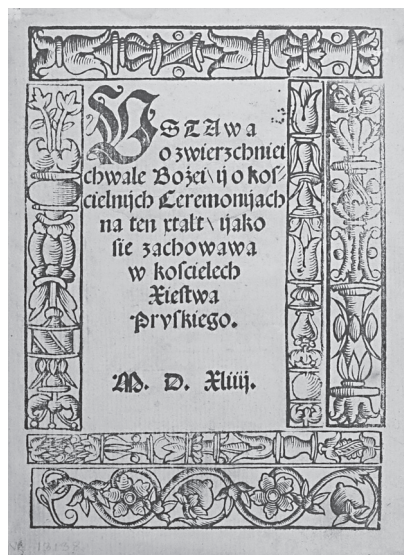 VSTAwa
o zwierzchniei
chwale Bożei\ ij o kos⸗
cielnijch Ceremonijach
na ten xtalt\ ijako
sie zachowawa
w koscielech
Xiestwa
Pryskiego.
M. D. Xliiij.